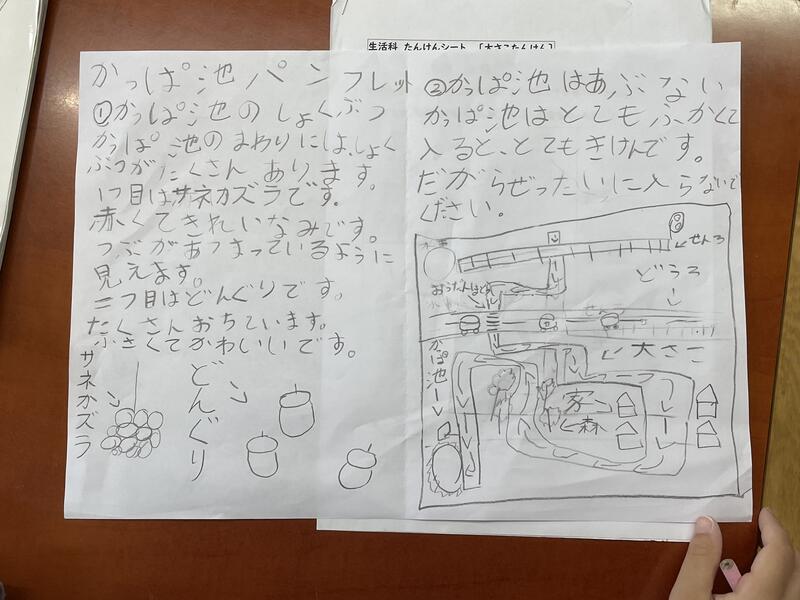 生活科 たんけんシート 「大さこたんけん」
かっぱ池パンフレット
①かっぱ池のしょくぶつ
かっぱ池のまわりには、しょく
ぶつがたくさんあります。
1つ目はサネカズラです。
赤くてきれいなみです。
つぶがあつまっているように
見えます。
二つ目はどんぐりです。
たくさんおちています。
小さくてかわいいです。
サネカズラ
どんぐり
②かっぱ池はあぶない
かっぱ池はとてもふかくて
入ると、とてもきけんです。
だからぜったいに入らないで
ください。
せんろ
どうろ
おうだんほどう
大さこ
かっぱ池
家
森